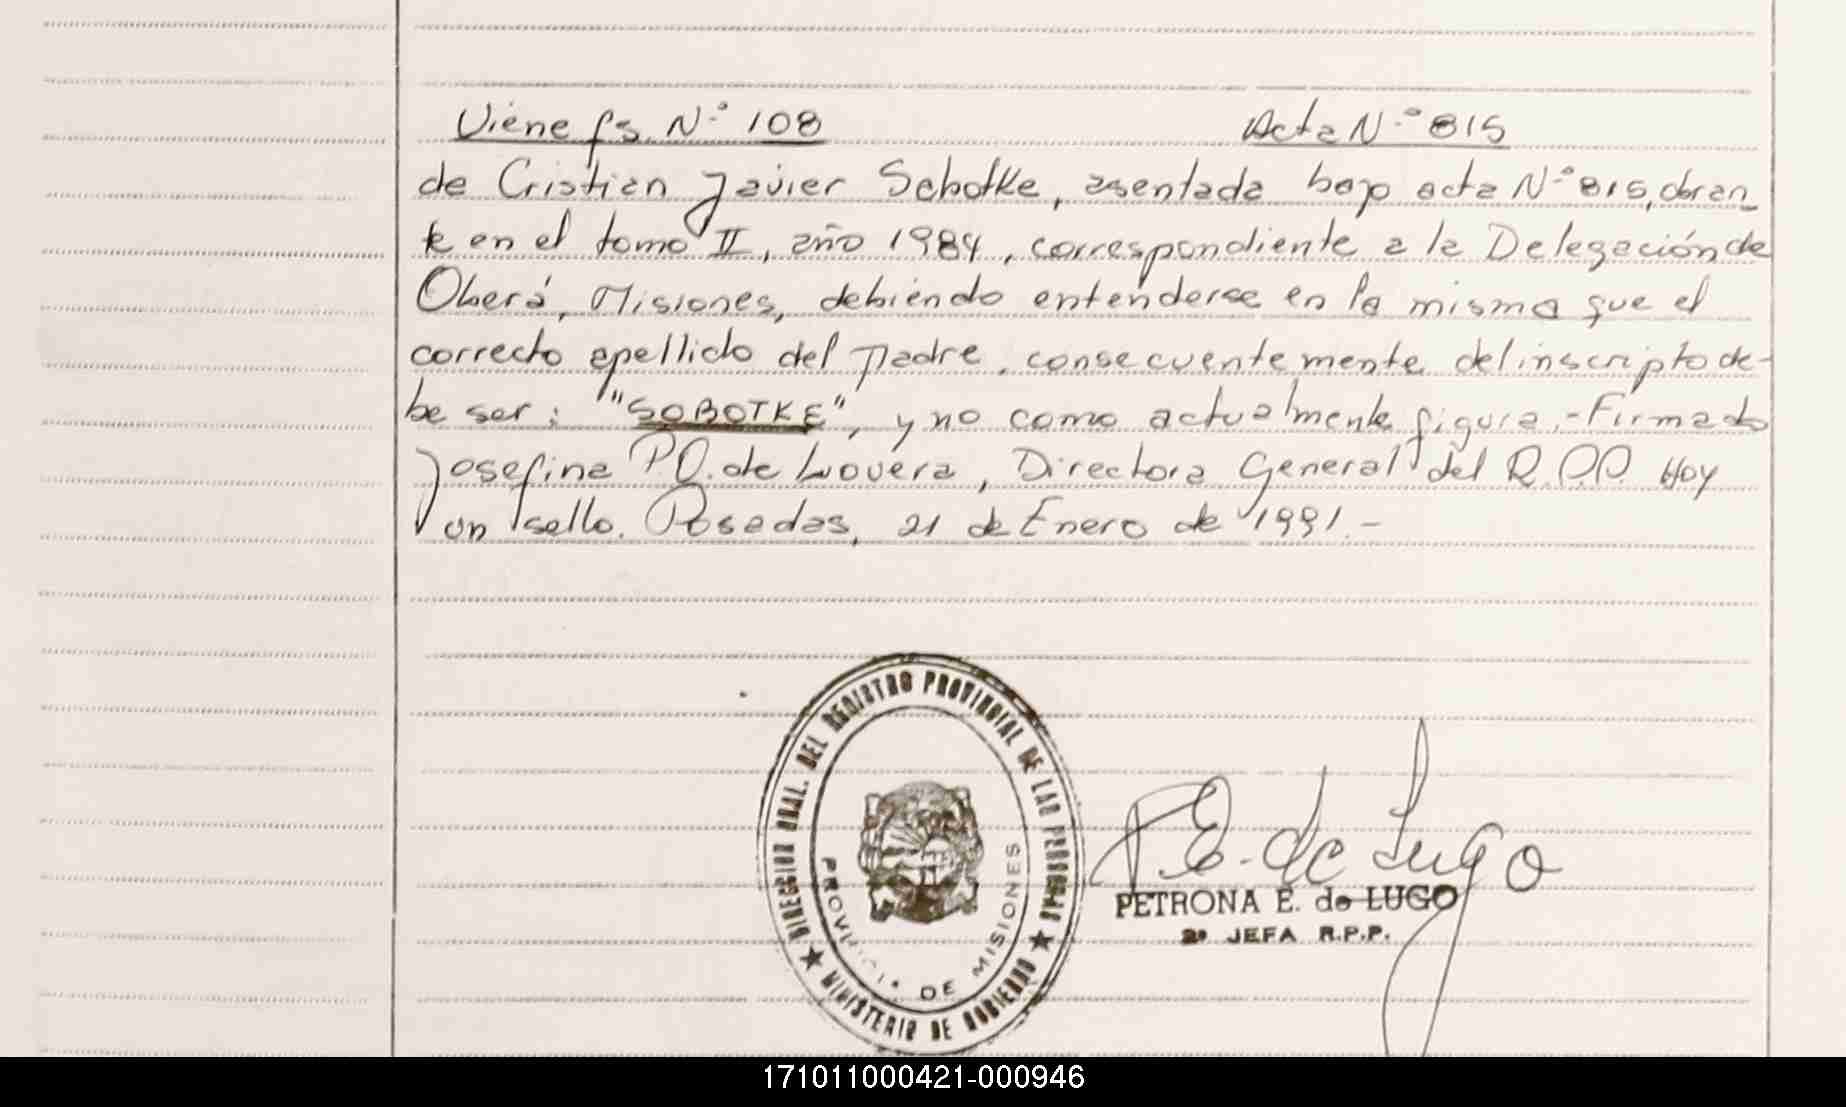 Viene fs. N.º 108 Acta N.º 815
de Cristian Javier Sebotke, asentada bajo acta N.º 815, obran_
te en el tomo II, año 1984, correspondiente a la Delegación de
Oberá, Misiones, debiendo entenderse en la misma que el
correcto apellido del Padre, consecuentemente del inscripto de-
be ser: "SOBOTKE", y no como actualmente figura.- Firmado
Josefina P.O. de Lovera, Directora General del R.P.P. Hay
un sello. Posadas, 21 de Enero de 1991.-
DIRECCION GRAL. DEL REGISTRO PROVINCIAL DE LAS PERSONAS
PROVINCIA DE MISIONES
★ MINISTERIO DE GOBIERNO ★
P.E. de Lugo
PETRONA E. de LUGO
2ª JEFA R.P.P.
171011000421-000946